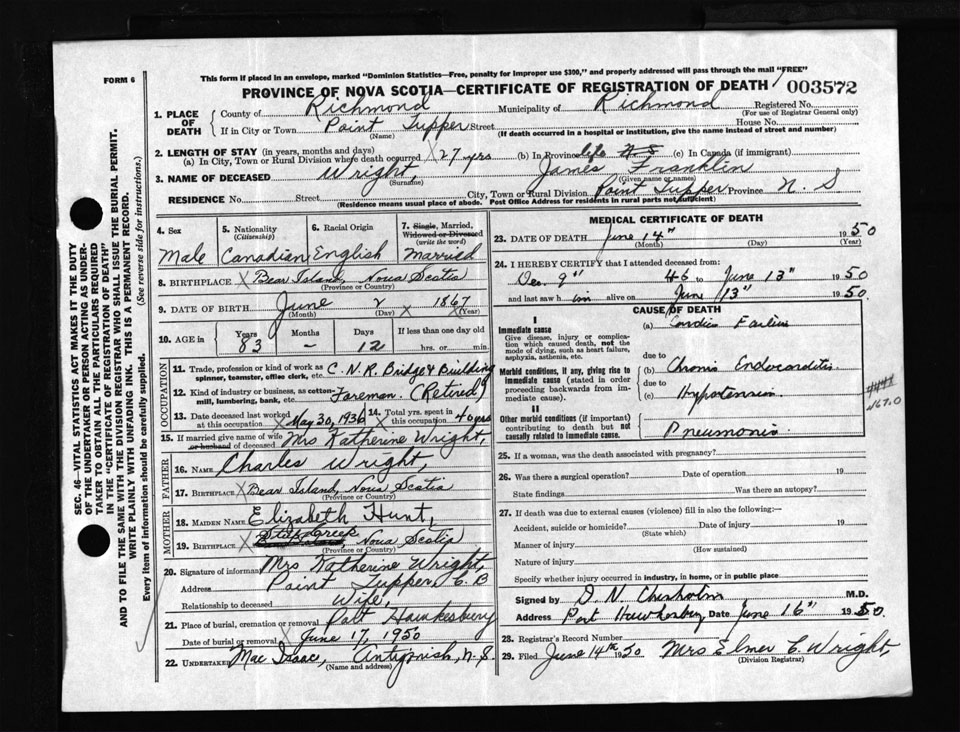 This form if placed in an envelope, marked "Dominion Statistics—Free, penalty for improper use $300," and properly addressed will pass through the mail "FREE"
FORM 6
PROVINCE OF NOVA SCOTIA—CERTIFICATE OF REGISTRATION OF DEATH
003572
1. PLACE OF DEATH
County of Richmond Municipality of Richmond Registered No.
(For use of Registrar General only)
If in City or Town Point Tupper Street House No.
(Name) (If death occurred in a hospital or institution, give the name instead of street and number)
2. LENGTH OF STAY (in years, months and days)
(a) In City, Town or Rural Division where death occurred X 27 yrs (b) In Province life N.S (c) In Canada (if immigrant)
3. NAME OF DECEASED Wright, James Franklin
(Surname) (Given name or names)
RESIDENCE No. Street City, Town or Rural Division Point Tupper Province N. S
(Residence means usual place of abode. Post Office Address for residents in rural parts not sufficient)
4. Sex
Male
5. Nationality
(Citizenship)
Canadian
6. Racial Origin
English
7. Single, Married, Widowed or Divorced
(write the word)
Married
8. BIRTHPLACE X Bear Island, Nova Scotia
(Province or Country)
9. DATE OF BIRTH June 2 X X 1867
(Month) (Day) (Year)
10. AGE in
Years Months Days If less than one day old
83 – 12 hrs. or min.
OCCUPATION
11. Trade, profession or kind of work as spinner, teamster, office clerk, etc. C.N.R Bridge & Building
12. Kind of industry or business, as cotton-mill, lumbering, bank, etc. Foreman. (Retired)
13. Date deceased last worked at this occupation X May 30, 1936
14. Total yrs. spent in this occupation X 40 yrs
15. If married give name of wife or husband of deceased Mrs Katherine Wright,
FATHER
16. NAME Charles Wright,
17. BIRTHPLACE X Bear Island, Nova Scotia
(Province or Country)
MOTHER
18. MAIDEN NAME Elizabeth Hunt,
19. BIRTHPLACE X Creek Nova Scotia
(Province or Country)
20. Signature of informant Mrs Katherine Wright,
Address Point Tupper C. B
Relationship to deceased Wife,
21. Place of burial, cremation or removal Port Hawkesbury
Date of burial or removal X June 17, 1950
22. UNDERTAKER Mac Isaac, Antigonish, N. S.
(Name and address)
MEDICAL CERTIFICATE OF DEATH
23. DATE OF DEATH June 14" 1950
(Month) (Day) (Year)
24. I HEREBY CERTIFY that I attended deceased from:
Dec. 9" 46 to June 13" 1950
and last saw him alive on June 13" 1950.
CAUSE OF DEATH
I
Immediate cause
Give disease, injury or complication which caused death, not the mode of dying, such as heart failure, asphyxia, asthenia, etc.
(a) Cardiac Failure
due to
Morbid conditions, if any, giving rise to immediate cause (stated in order proceeding backwards from immediate cause).
(b) Chronic Endocarditis
due to
(c) Hypotension
II
Other morbid conditions (if important) contributing to death but not causally related to immediate cause.
Pneumonia
25. If a woman, was the death associated with pregnancy?
26. Was there a surgical operation? Date of operation 19
State findings Was there an autopsy?
27. If death was due to external causes (violence) fill in also the following:—
Accident, suicide or homicide? Date of injury 19
(State which)
Manner of injury
(How sustained)
Nature of injury
Specify whether injury occurred in industry, in home, or in public place
Signed by D. N. Chisholm M.D.
Address Port Hawkesbury Date June 16" 1950.
28. Registrar's Record Number
29. Filed June 14th 1950 Mrs Elmer C. Wright,
(Division Registrar)
SEC. 46—VITAL STATISTICS ACT MAKES IT THE DUTY
OF THE UNDERTAKER OR PERSON ACTING AS UNDER-
TAKER TO OBTAIN ALL THE PARTICULARS REQUIRED
IN THE "CERTIFICATE OF REGISTRATION OF DEATH"
AND TO FILE THE SAME WITH THE DIVISION REGISTRAR WHO SHALL ISSUE THE BURIAL PERMIT.
WRITE PLAINLY WITH UNFADING INK. THIS IS A PERMANENT RECORD.
Every item of information should be carefully supplied. (See reverse side for instructions.)